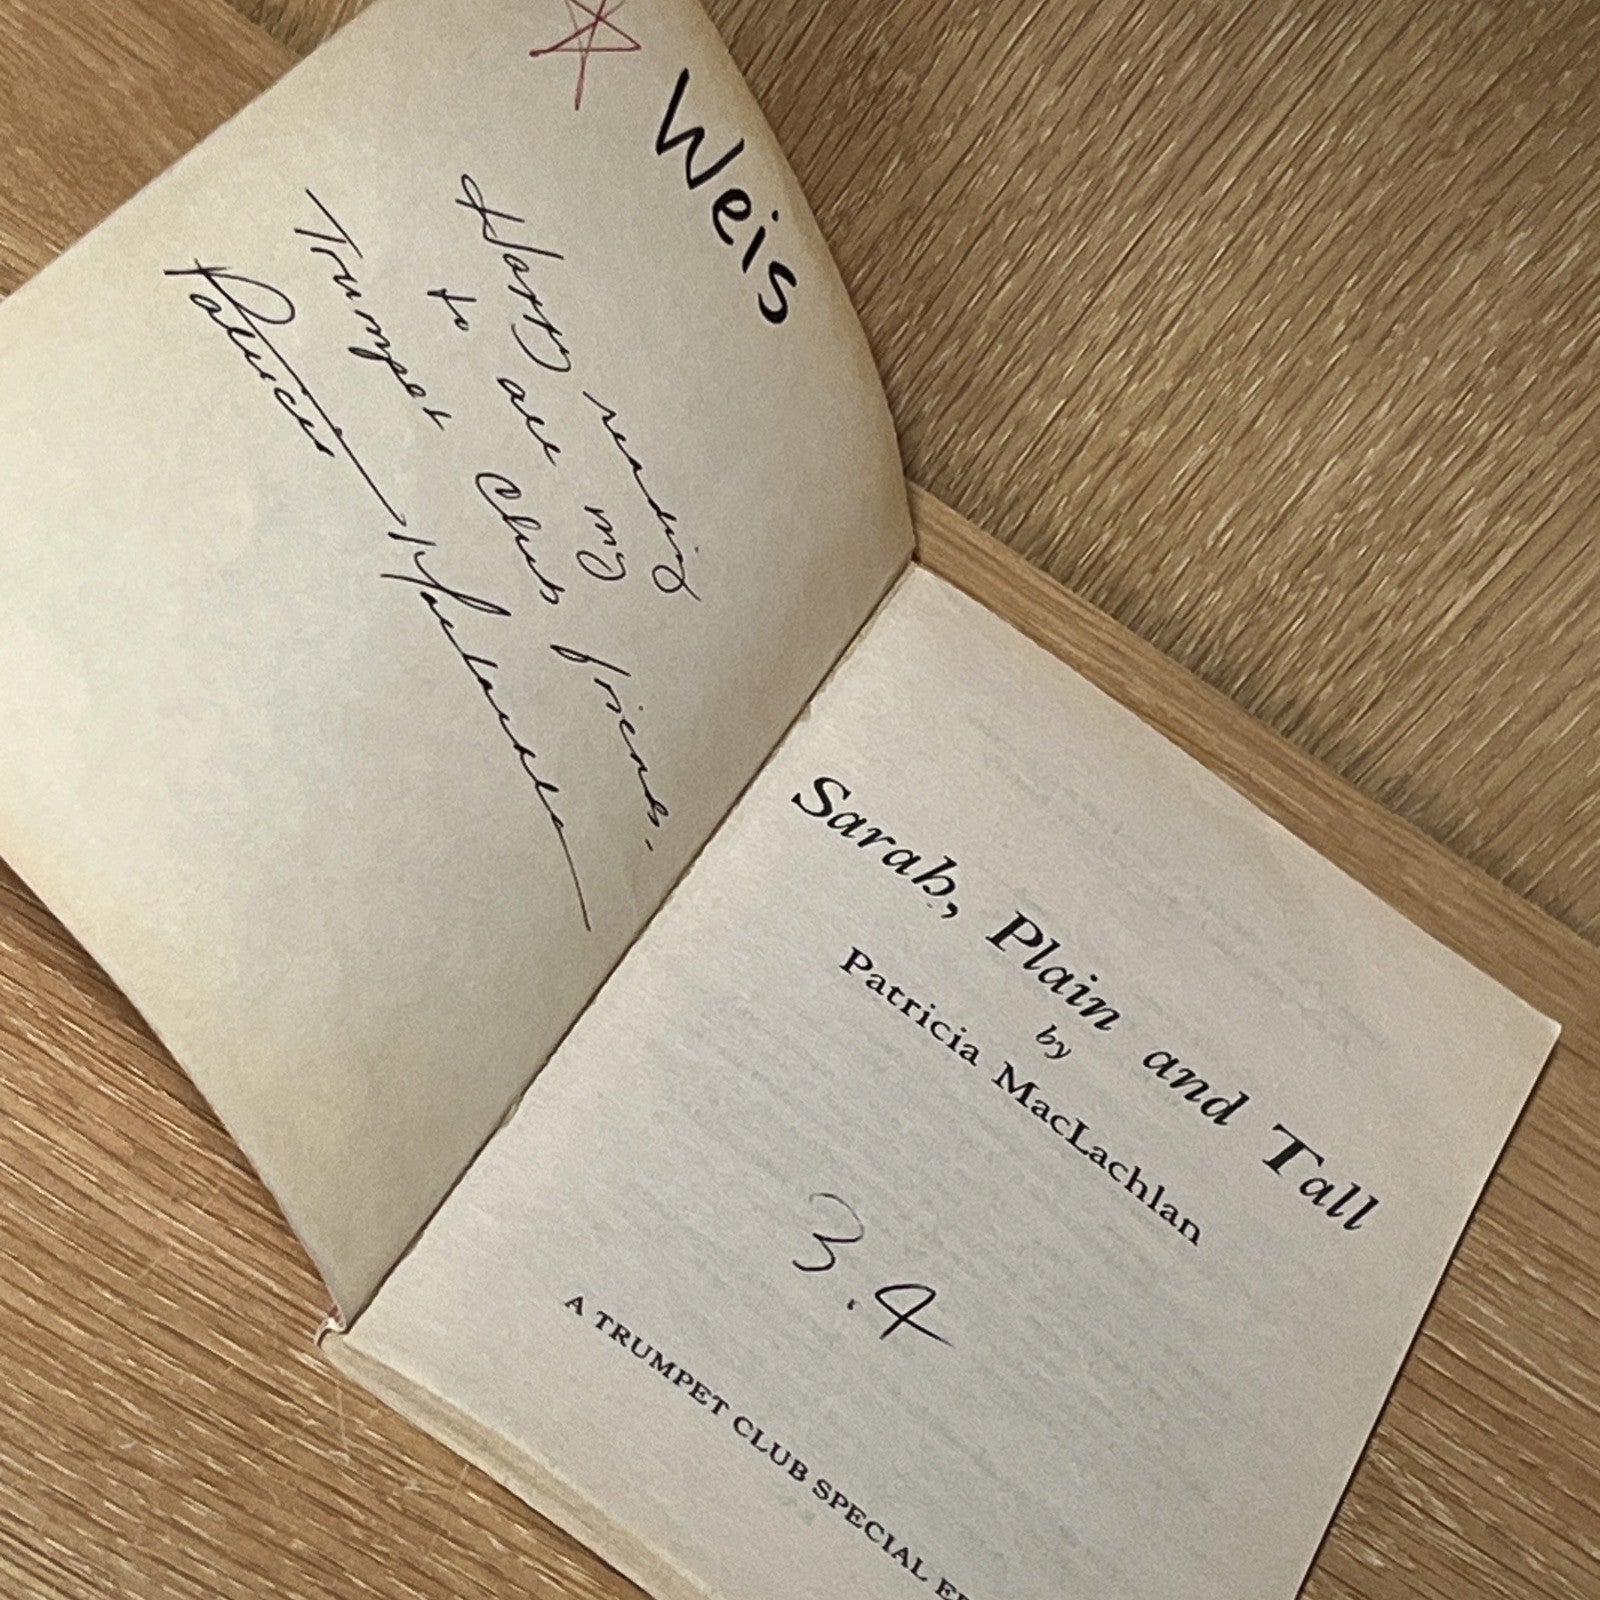 Weis
Happy reading
to all my
Trumpet Club friends.
Patricia MacLachlan
Sarah, Plain and Tall
by
Patricia MacLachlan
3.4
A TRUMPET CLUB SPECIAL